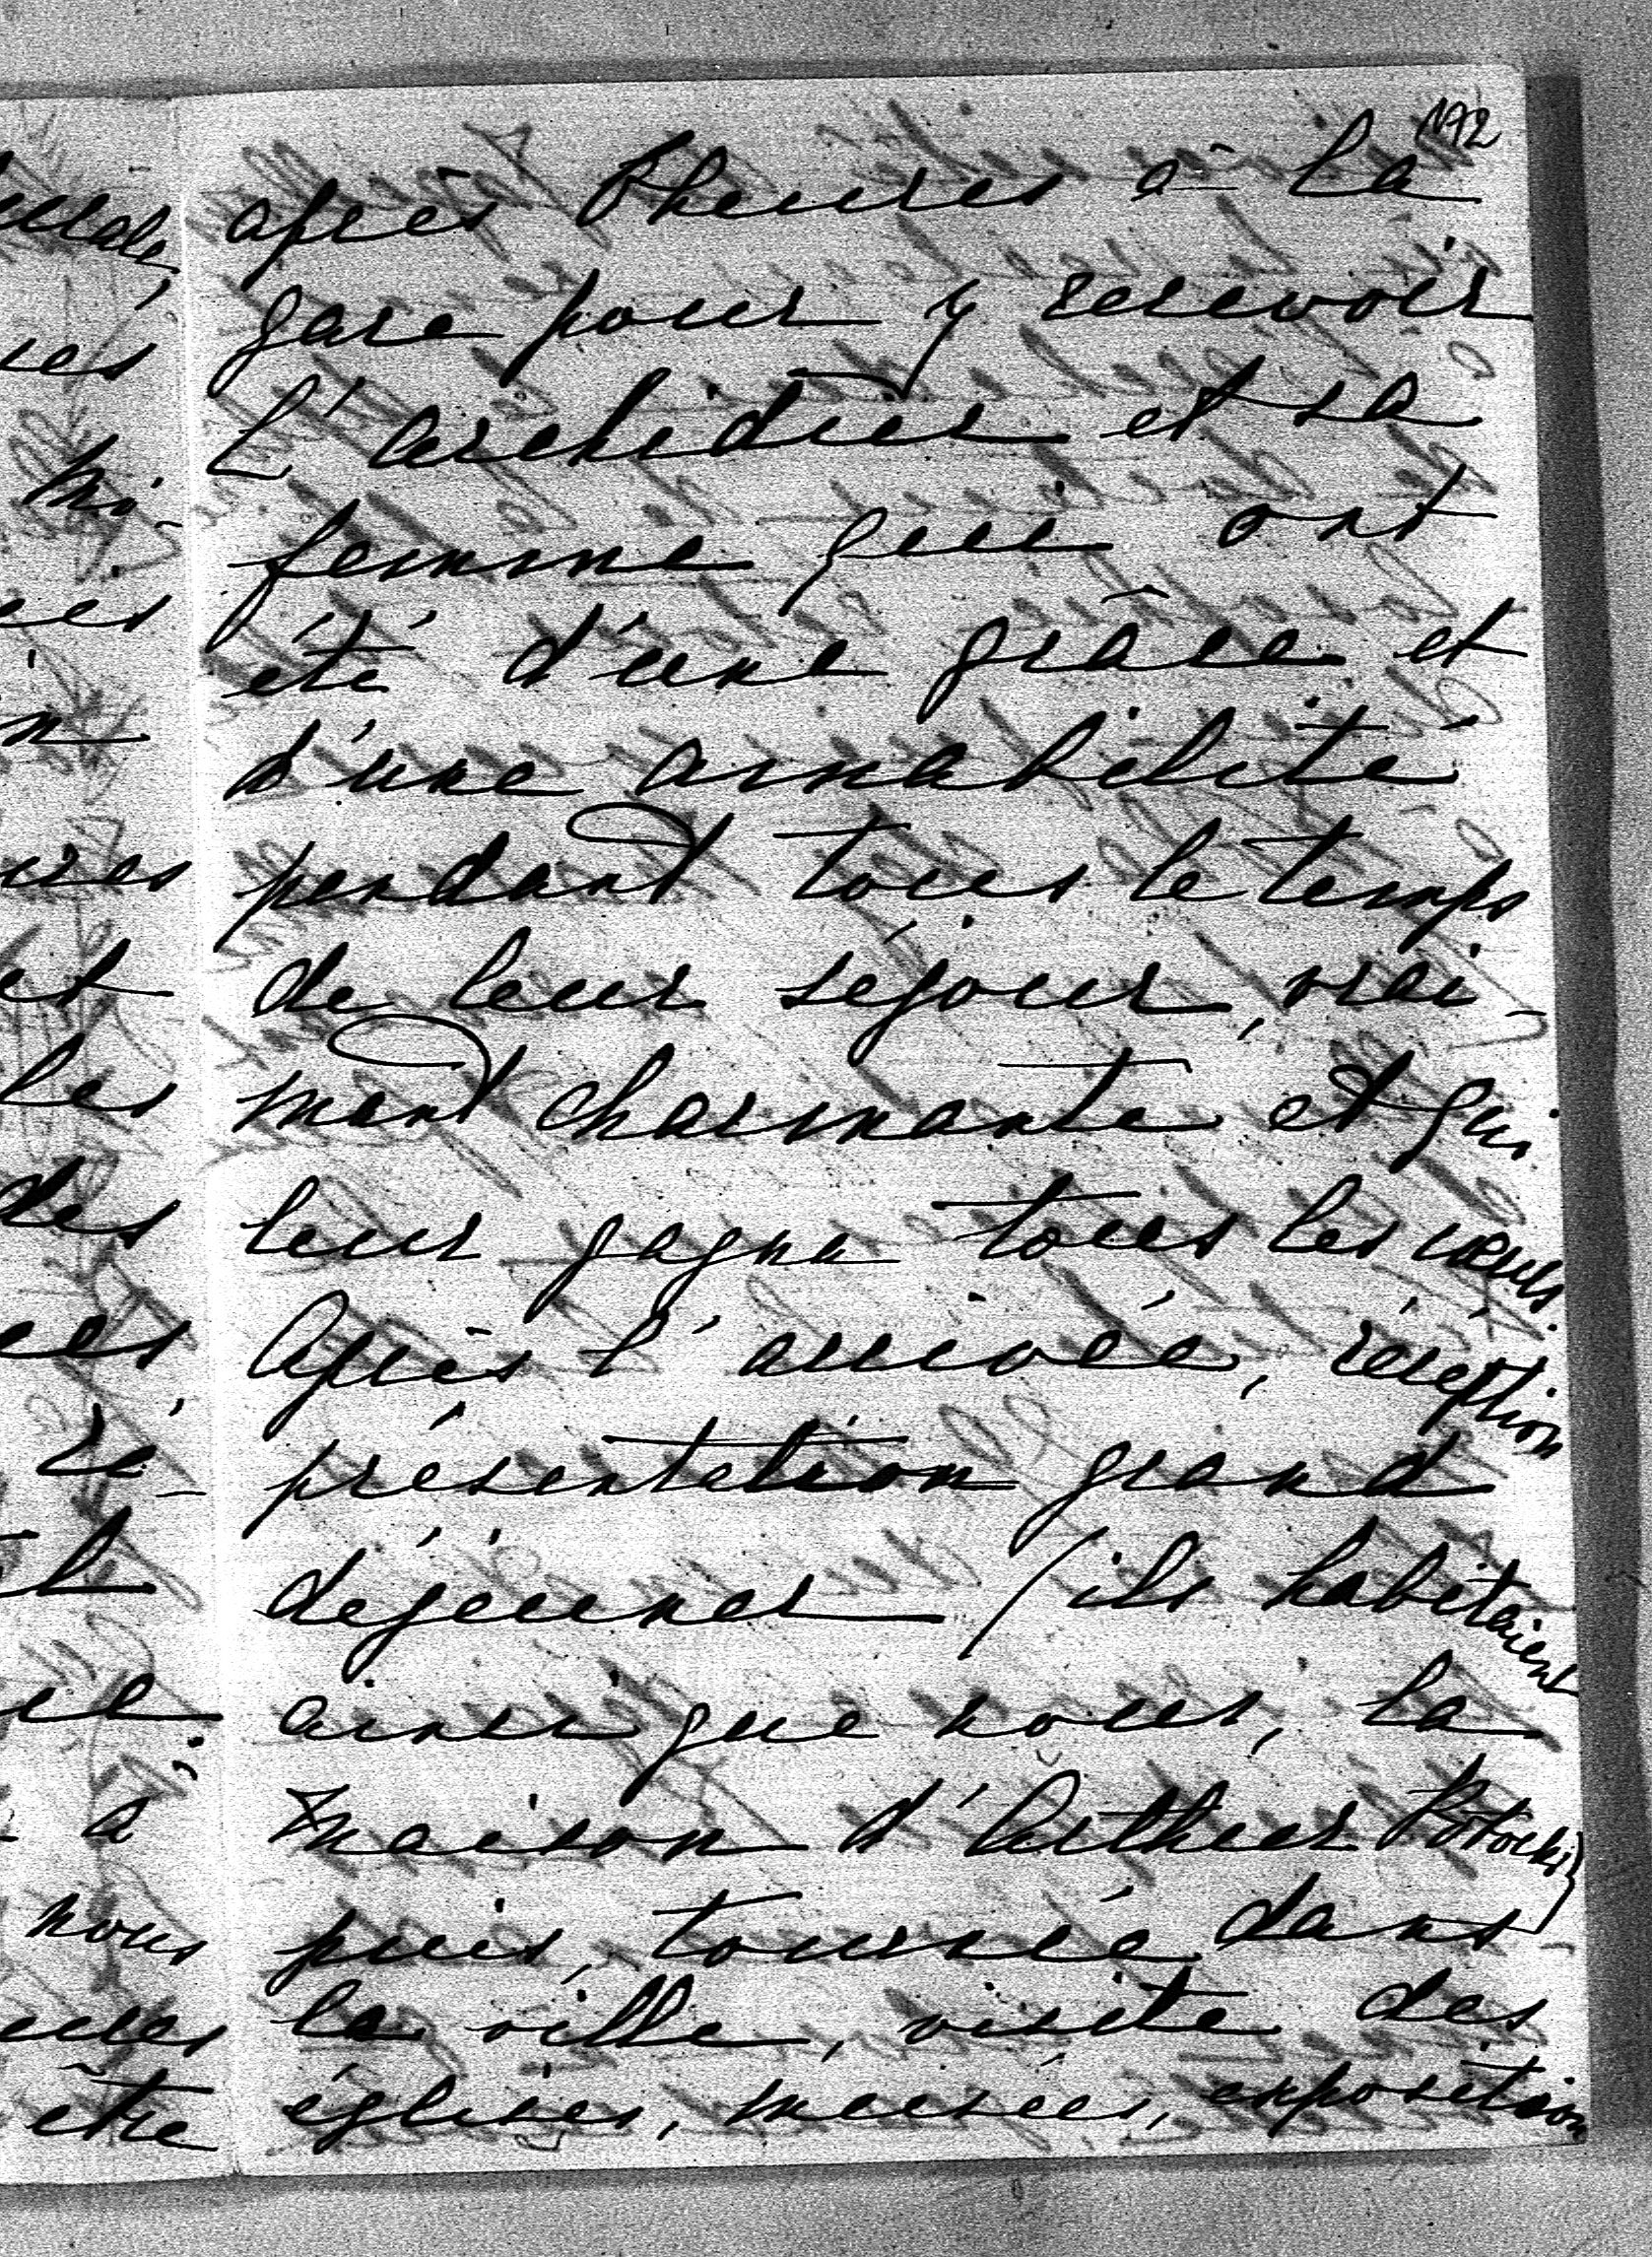 172
après 8 heures à la
gare pour y recevoir
l'archiduc et sa
femme qui ont
été d'une grâce et
d'une amabilité
pendant tous le temps
de leur séjour, vrai-
ment charmante et qui
leur gagna tous les cœurs.
Après l'arrivée, réception
présentation grand
déjeuner (ils habitaient
ainsi que nous, la
maison d'Arthur Potocki)
puis, tournée dans
la ville, visite des
églises, musées, exposition